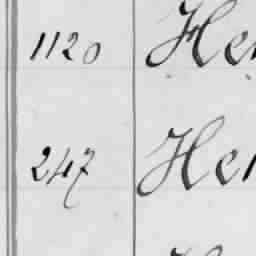 1120 Hen
247 Hen